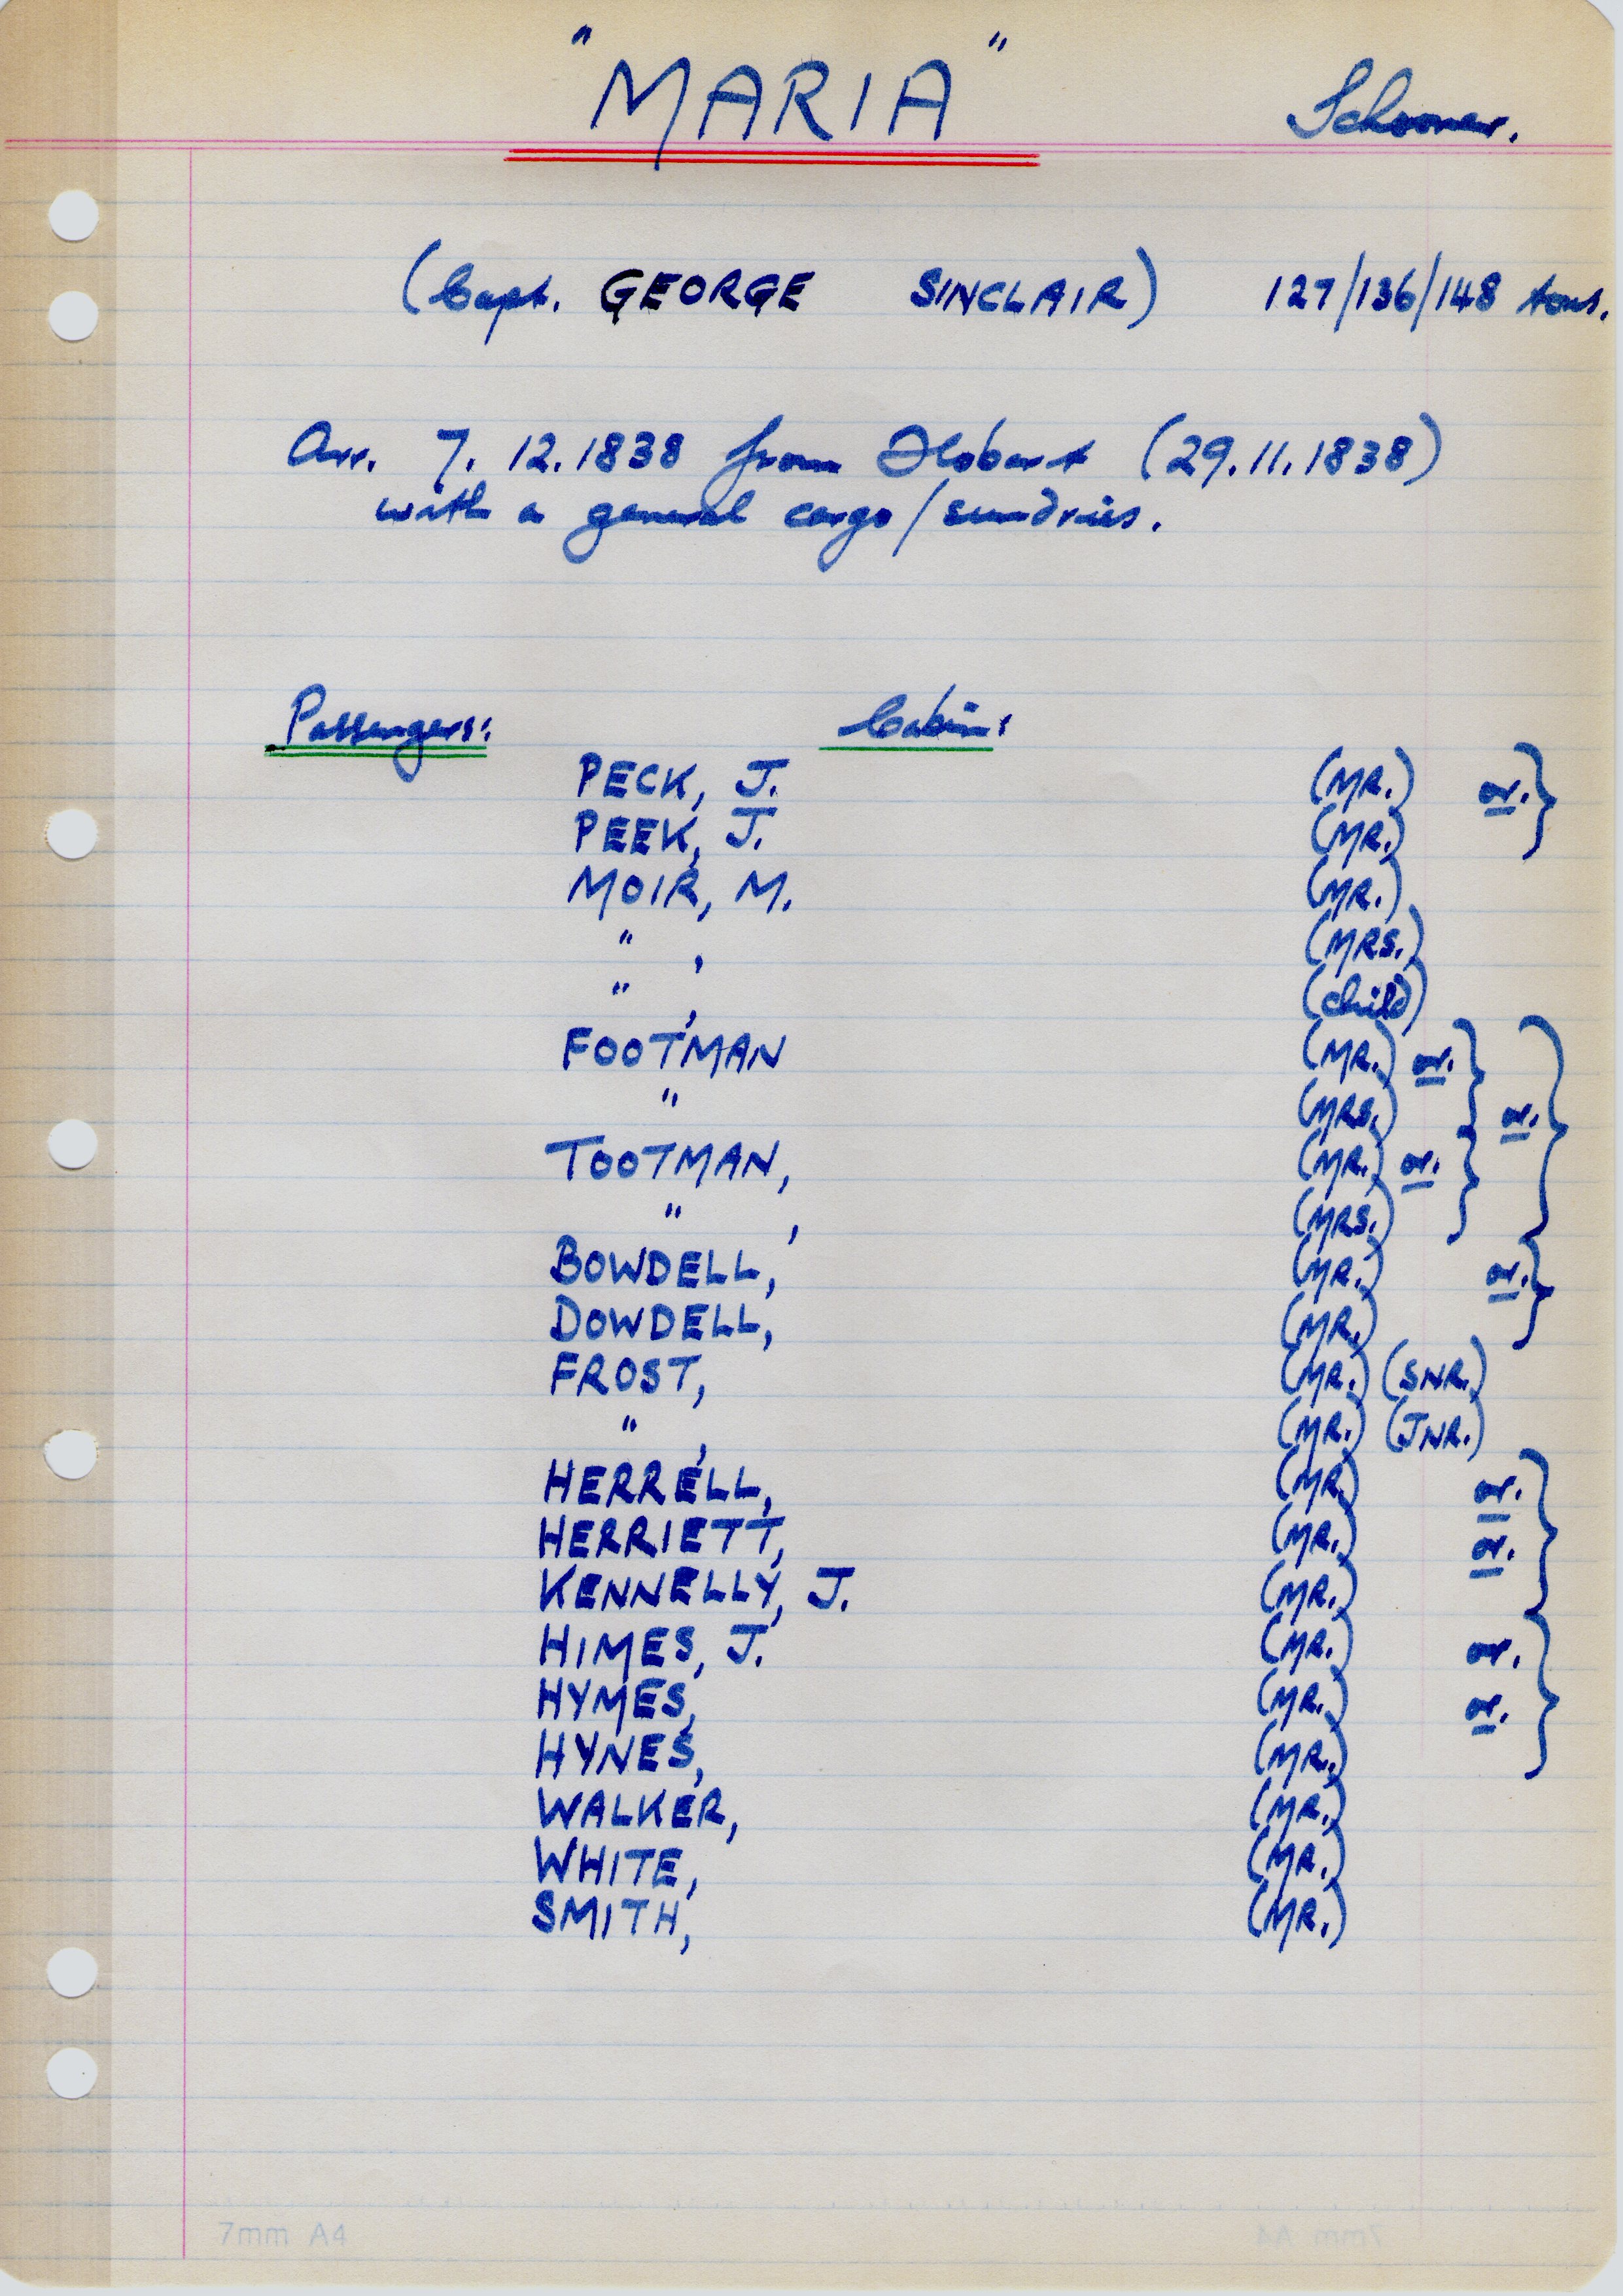 "MARIA" Schooner.
(Capt. GEORGE SINCLAIR) 127/136/148 tons.
Arr. 7.12.1838 from Hobart (29.11.1838)
with a general cargo/sundries.
Passengers: Cabin:
PECK, J. (MR.) or.
PEEK, J. (MR.)
MOIR, M. (MR.)
" , (MRS.)
" , (child)
FOOTMAN (MR.) or.
" (MRS.) or.
TOOTMAN, (MR.) or.
" , (MRS.)
BOWDELL, (MR.) or.
DOWDELL, (MR.)
FROST, (MR.) (SNR.)
" , (MR.) (JNR.)
HERRELL, (MR.) or.
HERRIETT, (MR.) or.
KENNELLY, J. (MR.)
HIMES, J. (MR.) or.
HYMES, (MR.) or.
HYNES, (MR.)
WALKER, (MR.)
WHITE, (MR.)
SMITH, (MR.)
7mm A4